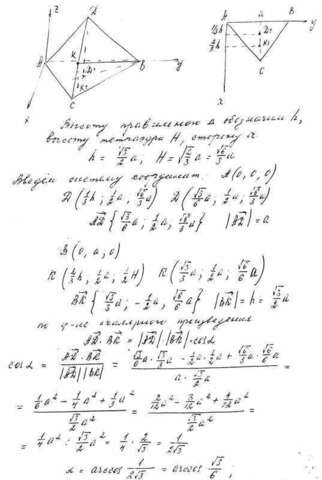 z
D
A
K
D₁
B
y
K₁
C
x
A
B
y
⅓h
D₁
⅔h
K₁
C
x
Высоту правильного Δ обозначим h,
высоту тетраэдра H, сторону a
h = √3/2 a, H = √(2/3) a = √6/3 a
Введём систему координат. A(0,0,0)
D(⅓h; ½a; √6/3 a) D(√3/6 a; ½a; √6/3 a)
AD {√3/6 a; ½a; √6/3 a} |AD| = a
B(0, a; 0)
K(⅔h; ½a; ½H) K(√3/3 a; ½a; √6/6 a)
BK {√3/3 a; -½a, √6/6 a} |BK| = h = √3/2 a
по ф-ле скалярного произведения
AD · BK = |AD| · |BK| · cosα
cosα = (AD · BK)/(|AD| |BK|) = (√3/6 a · √3/3 a - ½a · ½a + √6/3 a · √6/6 a)/(a · √3/2 a) =
= (1/6 a² - 1/4 a² + 1/3 a²)/(√3/2 a²) = (2/12 a² - 3/12 a² + 4/12 a²)/(√3/2 a²) =
= 1/4 a² : √3/2 a² = 1/4 · 2/√3 = 1/(2√3)
α = arccos 1/(2√3) = arccos √3/6 ;